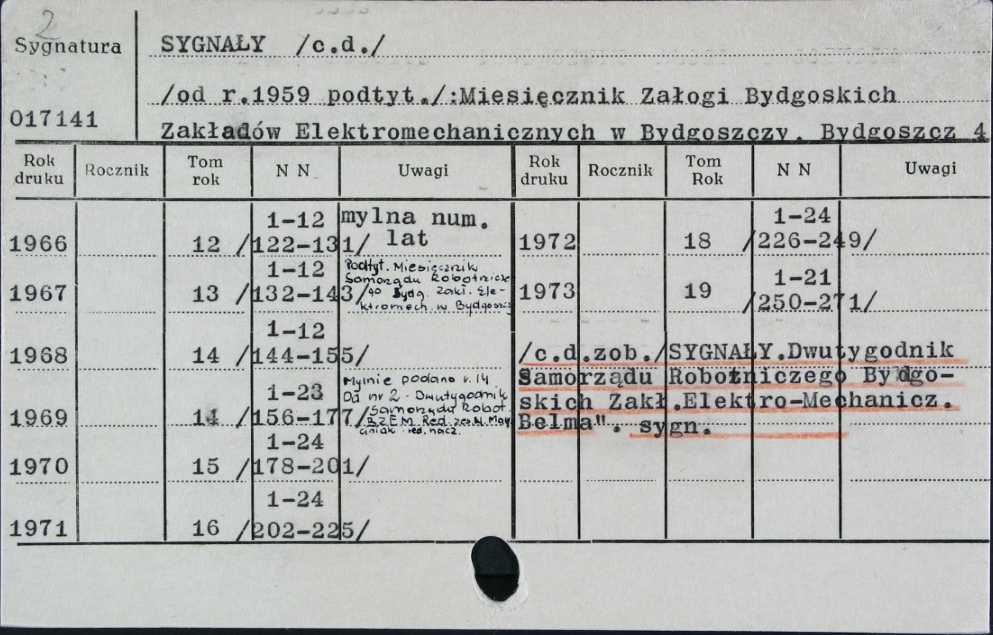 2
Sygnatura
SYGNAŁY /c.d./
/od r.1959 podtyt./:Miesięcznik Załogi Bydgoskich
017141
Zakładów Elektromechanicznych w Bydgoszczy. Bydgoszcz 4
Rok druku Rocznik Tom rok N N Uwagi Rok druku Rocznik Tom Rok N N Uwagi
1966 12 1-12 /122-131/ mylna num. lat
1967 13 1-12 /132-143/ Podtyt. Miesięcznik
Samorządu Robotnicze
go Bydg. Zakł. Ele-
ktromech. w Bydgoszcz
1968 14 1-12 /144-155/
1969 14 1-23 /156-177/ Mylnie podano r. 14
Od nr 2 - Dwutygodnik
Samorządu Robot.
BZEM. Red. zes. W.
red. nacz.
1970 15 1-24 /178-201/
1971 16 1-24 /202-225/
1972 18 1-24 /226-249/
1973 19 1-21 /250-271/
/c.d.zob./SYGNAŁY.Dwutygodnik
Samorządu Robotniczego Bydgo-
skich Zakł.Elektro-Mechanicz.
Belma". sygn.